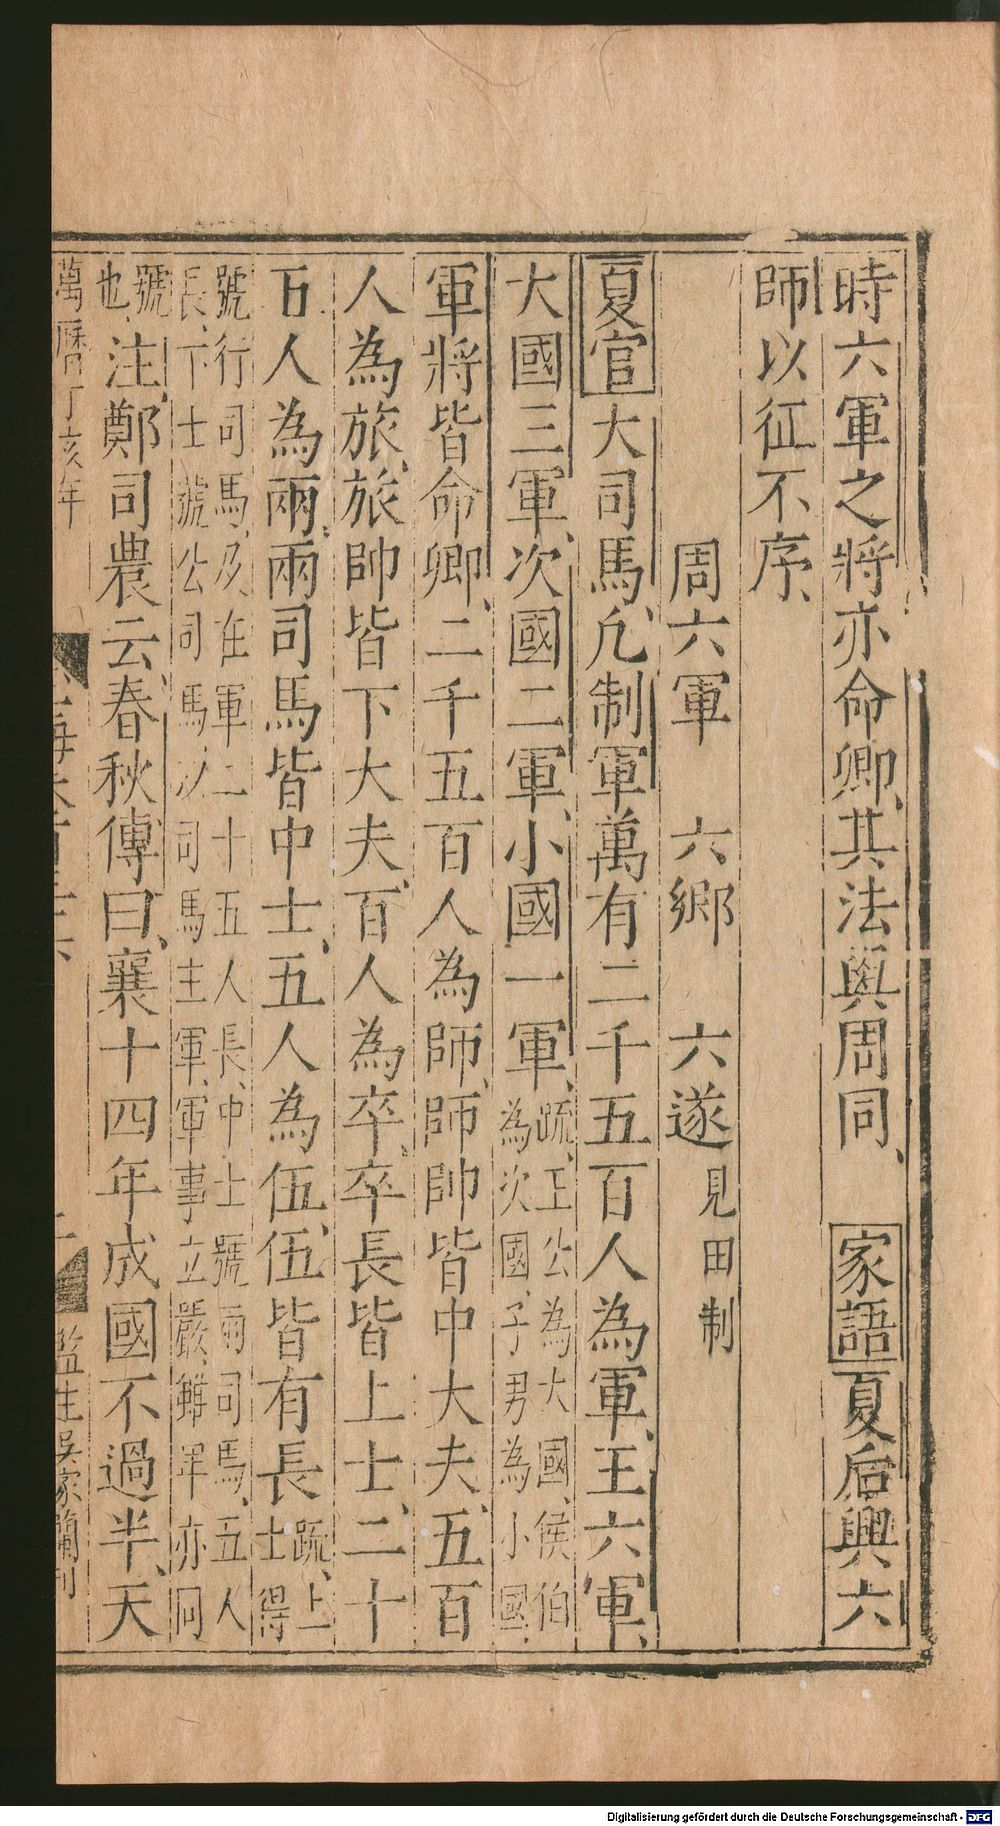 時六軍之將亦命卿、其法與周同、家語夏后興六
師以征不序、
周六軍　六鄉　六遂見田制
夏官大司馬、凡制軍萬有二千五百人為軍、王六軍、
大國三軍、次國二軍、小國一軍、疏、王公為大國、侯伯
為次國、子男為小國、
軍將皆命卿、二千五百人為師、師帥皆中大夫、五百
人為旅、旅帥皆下大夫、百人為卒、卒長皆上士、二十
五人為兩、兩司馬皆中士、五人為伍、伍皆有長疏、上
士得
號行司馬、及在軍二十五人長、中士號兩司馬、五人
長、下士號公司馬、次司馬主軍、軍事立嚴、雖卑亦同
號
也注、鄭司農云、春秋傳曰、襄十四年成國不過半、天
萬曆丁亥年
監生吳家蘭刊
Digitalisierung gefördert durch die Deutsche Forschungsgemeinschaft - DFG